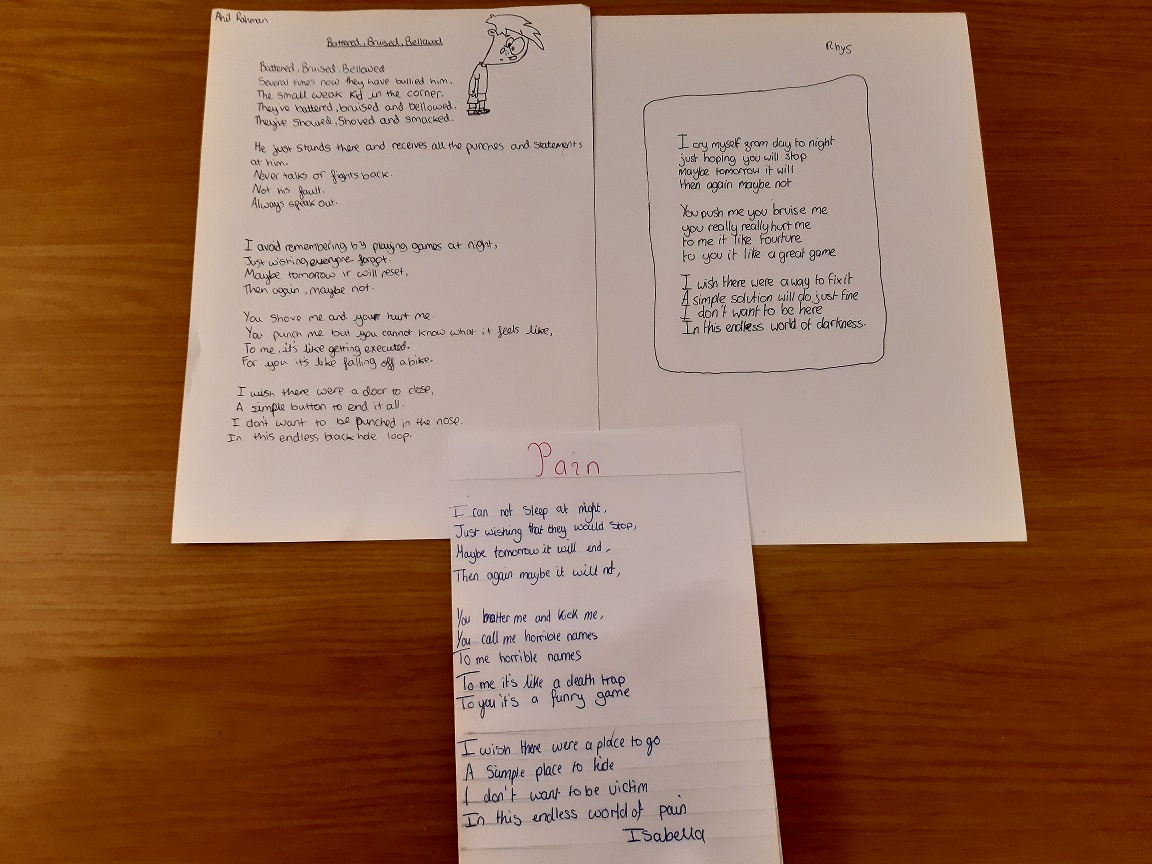 Ahil Rahman
Battered, Bruised, Bellowed
Battered, Bruised, Bellowed
Several times now they have bullied him.
The small weak kid in the corner.
They've battered, bruised and bellowed.
They've showed, shoved and smacked.
He just stands there and receives all the punches and statements
at him.
Never talks or fights back.
Not his fault.
Always speak out.
I avoid remembering by playing games at night,
Just wishing everyone forgot.
Maybe tomorrow it will reset,
Then again, maybe not.
You shove me and your hurt me.
You punch me but you cannot know what it feels like,
To me, it's like getting executed.
For you it's like falling off a bike.
I wish there were a door to close,
A simple button to end it all.
I don't want to be punched in the nose.
In this endless back hole loop.
Rhys
I cry myself from day to night
just hoping you will stop
maybe tomorrow it will
then again maybe not
You push me you bruise me
you really really hurt me
to me it like tourture
to you it like a great game
I wish there were a way to fix it
A simple solution will do just fine
I don't want to be here
In this endless world of darkness.
Pain
I can not sleep at night,
Just wishing that they would stop,
Maybe tomorrow it will end,
Then again maybe it will not,
You batter me and kick me,
You call me horrible names
To me horrible names
To me it's like a death trap
To you it's a funny game
I wish there were a place to go
A simple place to hide
I don't want to be victim
In this endless world of pain
Isabella